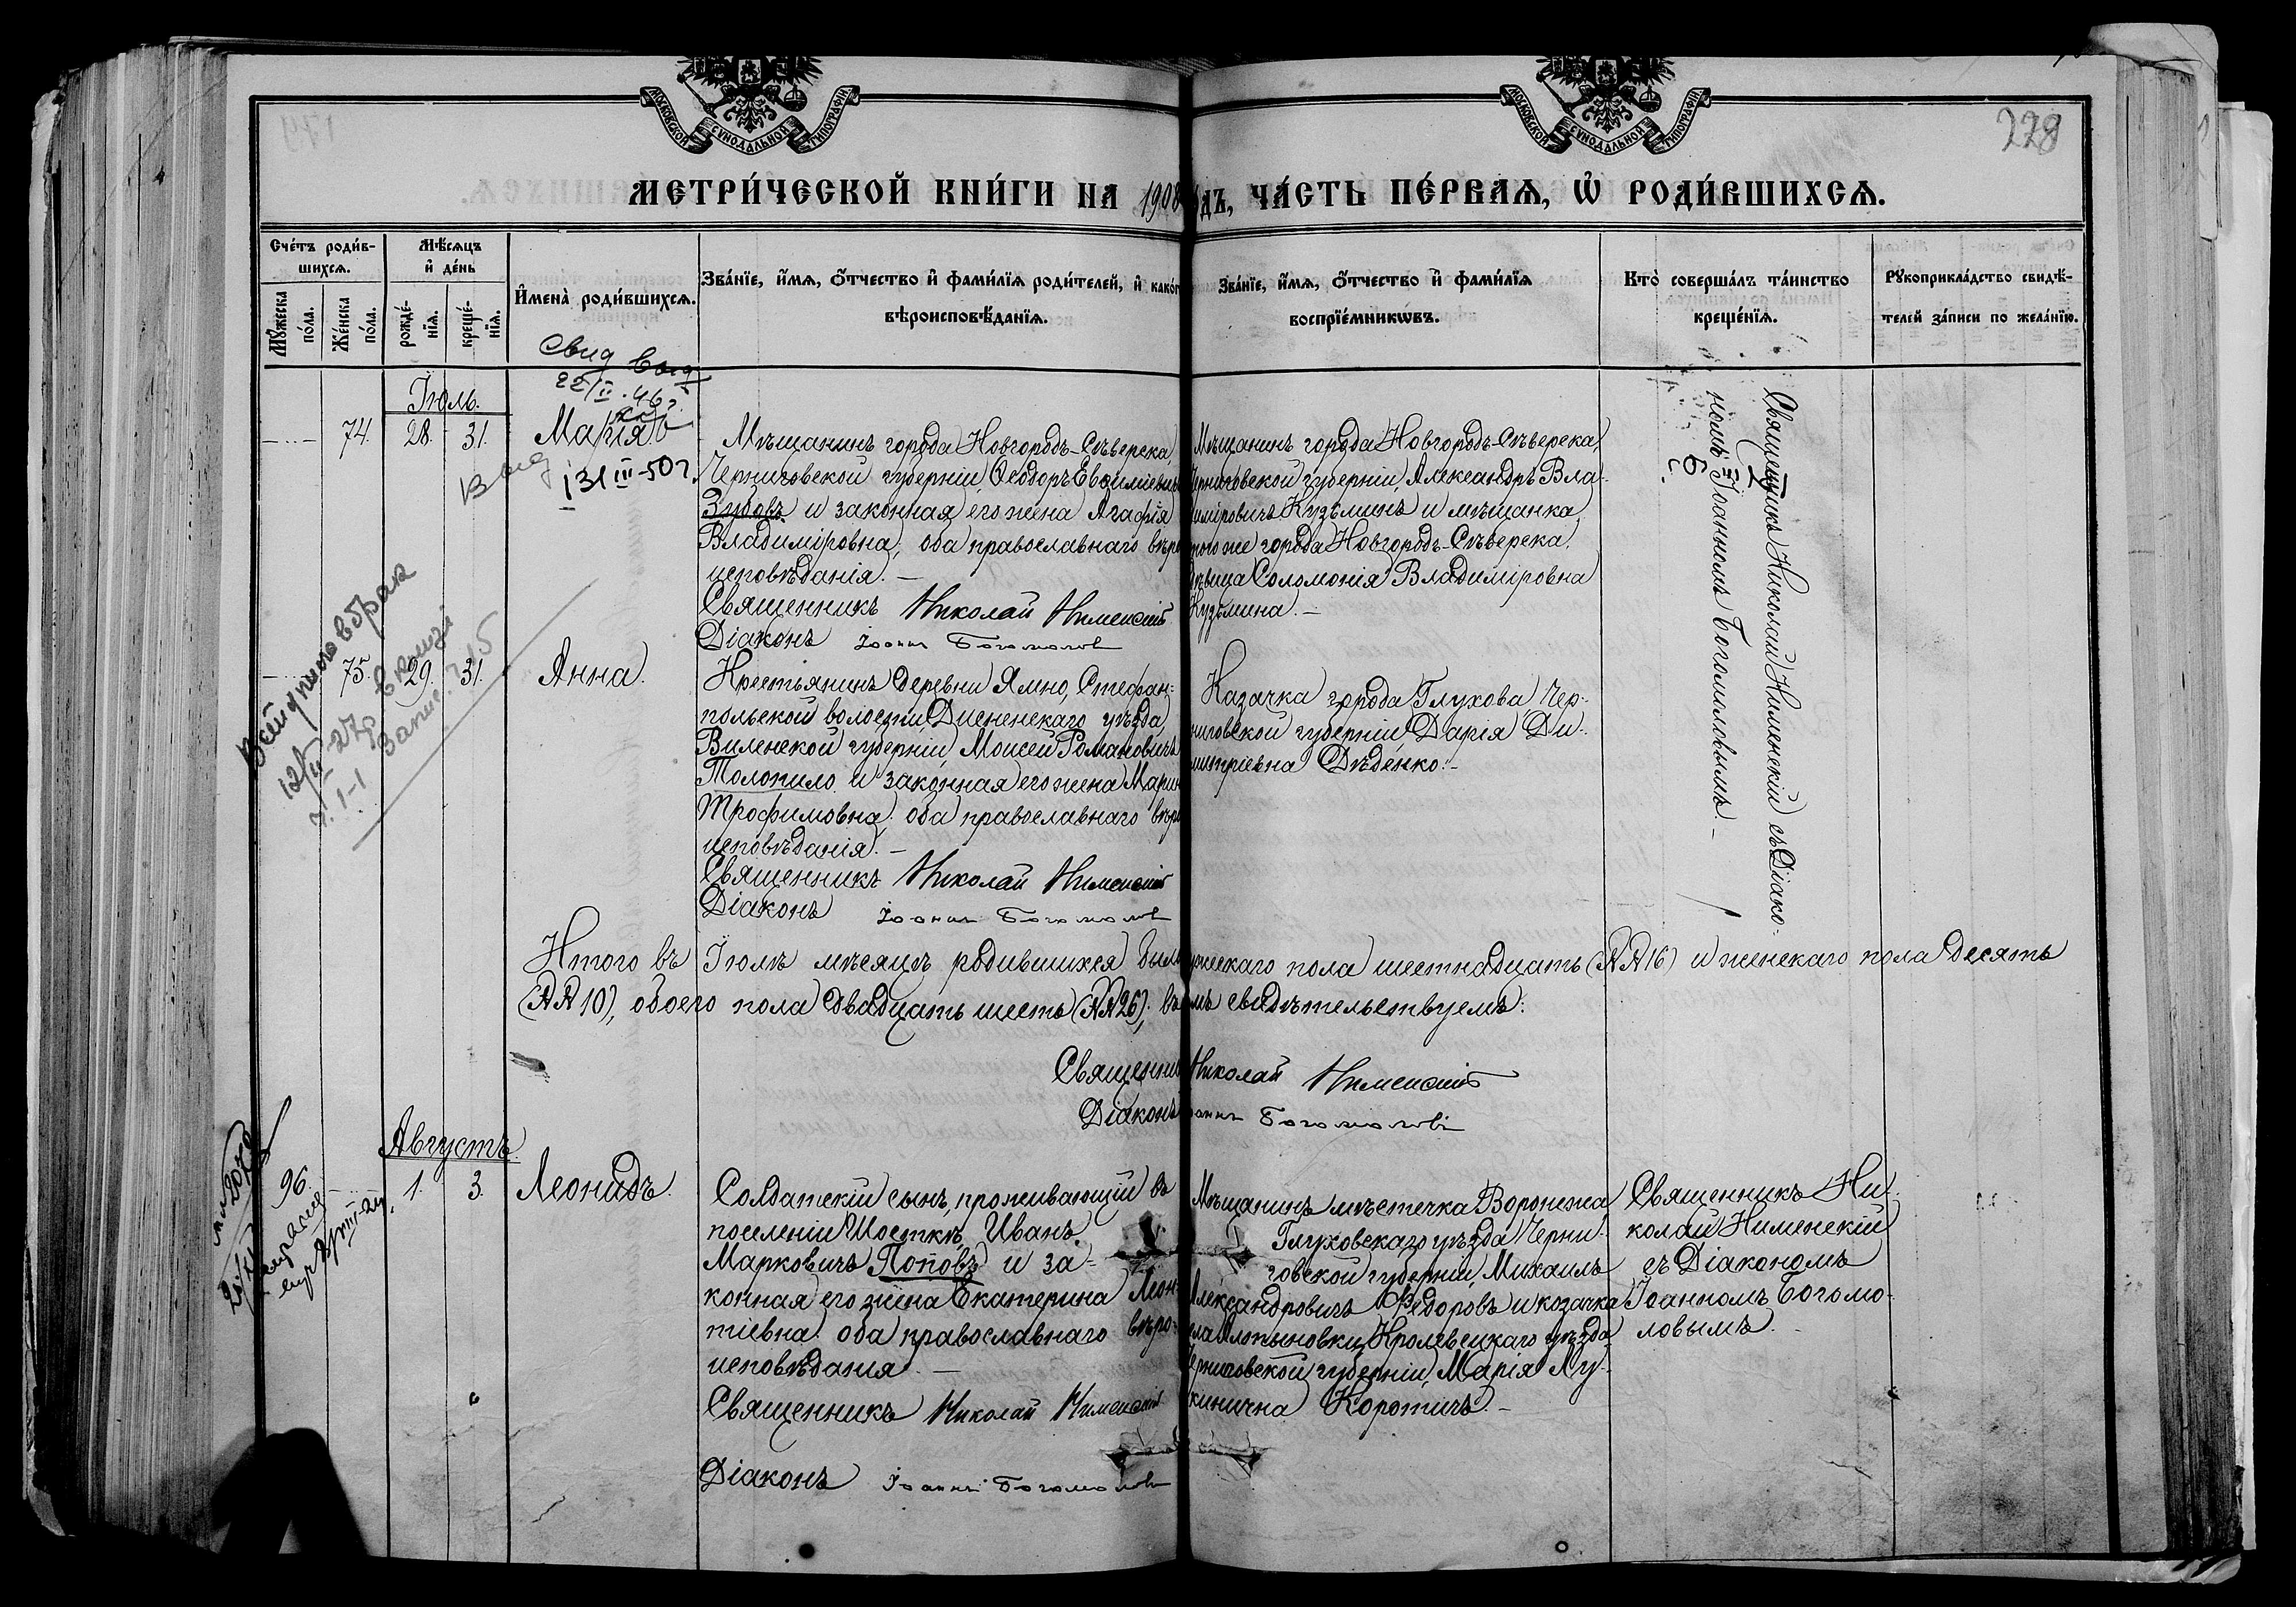 МОСКОВСКОЙ СѴНОДАЛЬНОЙ ТИПОГРАФІИ
МОСКОВСКОЙ СѴНОДАЛЬНОЙ ТИПОГРАФІИ
228
МЕТРИ́ЧЕСКОЙ КНИ́ГИ НА 1908 ДЪ, ЧА́СТЬ ПЕ́РВАѦ, Ѡ҆ РОДИ́ВШИХСѦ.
Сче́тъ роди́в-
шихсѧ.
Мꙋ́жеска по́ла.
Же́нска по́ла.
Мѣ́сѧцъ
и҆ де́нь
рожде́-
нїѧ.
креще́-
нїѧ.
И҆мена̀ роди́вшихсѧ.
Зва́нїе, и҆́мѧ, ѻ҆́тчество и҆ фами́лїѧ роди́телей, и҆ како́г
вѣроисповѣ́данїѧ.
Зва́нїе, и҆́мѧ, ѻ҆́тчество и҆ фами́лїѧ
воспрїе́мникѡвъ.
Кто̀ соверша́лъ та́инство
креще́нїѧ.
Рꙋкоприкла́дство свидѣ́-
телей за́писи по жела́нїю.
Свид выд
22/II.46г.
Іюль.
74. 28. 31. Марія
Выд
31 III-50г.
Мѣщанинъ города Новгородъ-Сѣверска,
Черниговской губерніи, Ѳеодоръ Евѳиміевичъ
Зубовъ и законная его жена Агафія
Владиміровна; оба православнаго вѣро
исповѣданія.—
Священникъ Николай Нименскій
Діаконъ Іоаннъ Богомолов
Мѣщанинъ города Новгородъ-Сѣверска,
Черниговской губерніи, Александръ Вла-
диміровичъ Кузьминъ и мѣщанка
того же города Новгородъ-Сѣверска,
дѣвица Соломонія Владиміровна
Кузьмина.—
Священникъ Николай Нименскій съ Діако-
номъ Іоанномъ Богомоловымъ.—
Вступила в брак
12/II-27г. в книзі
ч. 1-1 запис. 315
75. 29. 31. Анна.
Крестьянинъ деревни Ямно, Стефан-
польской волости, Дисненскаго уѣзда,
Виленской губерніи, Моисей Романовичъ
Толопило и законная его жена Марин
Трофимовна; оба православнаго вѣро
исповѣданія.—
Священникъ Николай Нименскій
Діаконъ Іоаннъ Богомолов
Казачка города Глухова, Чер-
ниговской губерніи, Дарія Ди-
митріевна Дѣденко.—
Итого въ Іюлѣ мѣсяцѣ родившихся было мужескаго пола шестнадцать (№№16) и женскаго пола десять
(№№10), обоего пола двадцать шесть (№№26); въ чемъ свидѣтельствуемъ:
Священникъ Николай Нименскій
Діаконъ Іоаннъ Богомоловъ
Августъ.
96. 1. 3. Леонидъ.
Солдатскій сынъ, проживающій въ
поселеніи Шосткѣ, Иванъ
Марковичъ Поповъ и за-
конная его жена Екатерина Леон-
тіевна; оба православнаго вѣро-
исповѣданія.—
Священникъ Николай Нименскій
Діаконъ Іоаннъ Богомоловъ
Мѣщанинъ мѣстечка Воронежа
Глуховскаго уѣзда, Черни-
говской губерніи, Михаилъ
Александровичъ Ѳедоровъ и козачка
села Алтыновки, Кролевецкаго уѣзда,
Черниговской губерніи, Марія Лу-
кинична Коротичъ.—
Священникъ Ни-
колай Нименскій
съ Діакономъ
Іоанномъ Богомо-
ловымъ.—